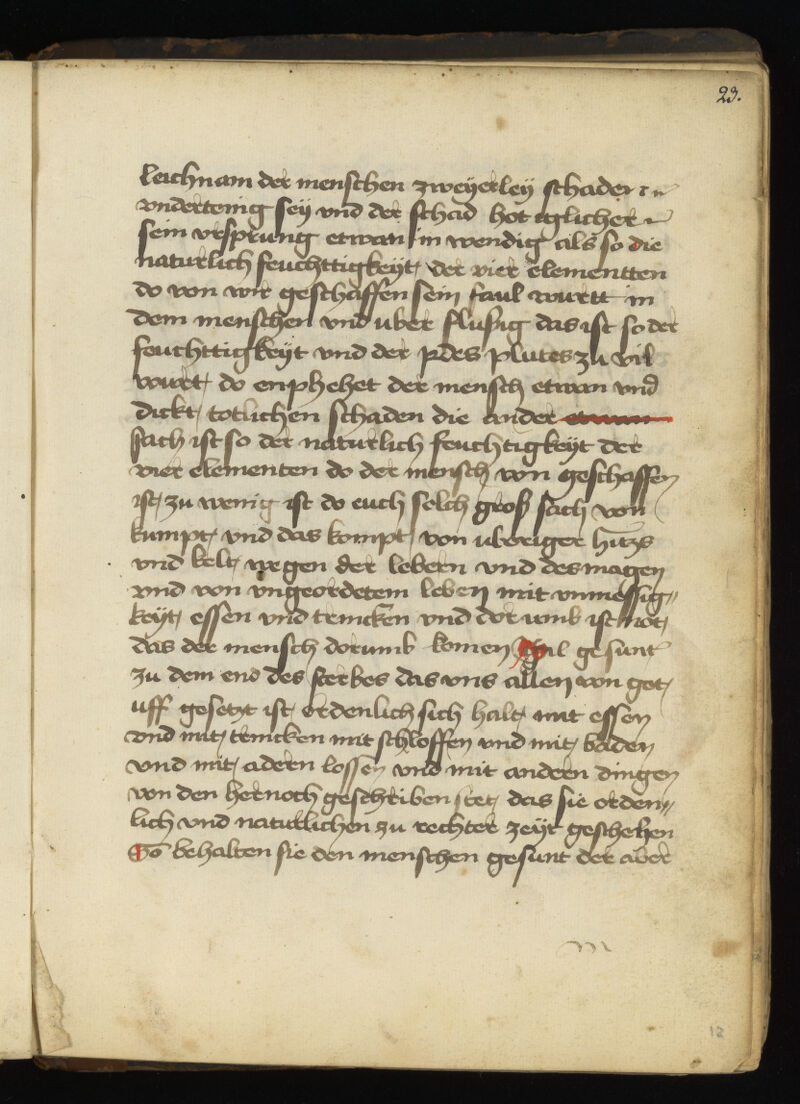 23.
leichnam der menschen zweyerley schader
vndertenig sey vnd der schad hot iglicher
sein vrsprung etwan in wendig als so die
naturlich feuchttigkeyt der vier elementten
do von wir geschaffen sein faul wurtt in
dem menschen vnd vber flussig das ist so der
feuchttigkeyt vnd der des plutes zu vil
wurt do enphehet der mensch etwan vnd
dickt totlichen schaden die ander etwan
sach ist so der naturlich feuchtigkeyt der
vier elementen do der mensch von geschaffen
ist zu wenig ist do euch solch groß sach von
kumpt vnd das kompt von vbriger hitze
vnd kelt wegen der lebern vnd des magen
vnd von vngeordetem leben mit vnmessig„
keyt essen vnd trincken vnd dor umb ist not
das der mensch dorumb komen wil gesunt
zu dem end des sterbes das vns allen von got
uff gesetzt ist ordenlich sich halt mit essen
vnd mit trincken mit schloffen vnd mit baden
vnd mit adern lossen vnd mit andern dingen
von den hernoch geschriben stet das sie orden„
lich vnd naturlichen zu rechter zeyt geschehen
So behalten sie den menschen gesunt der aber
12